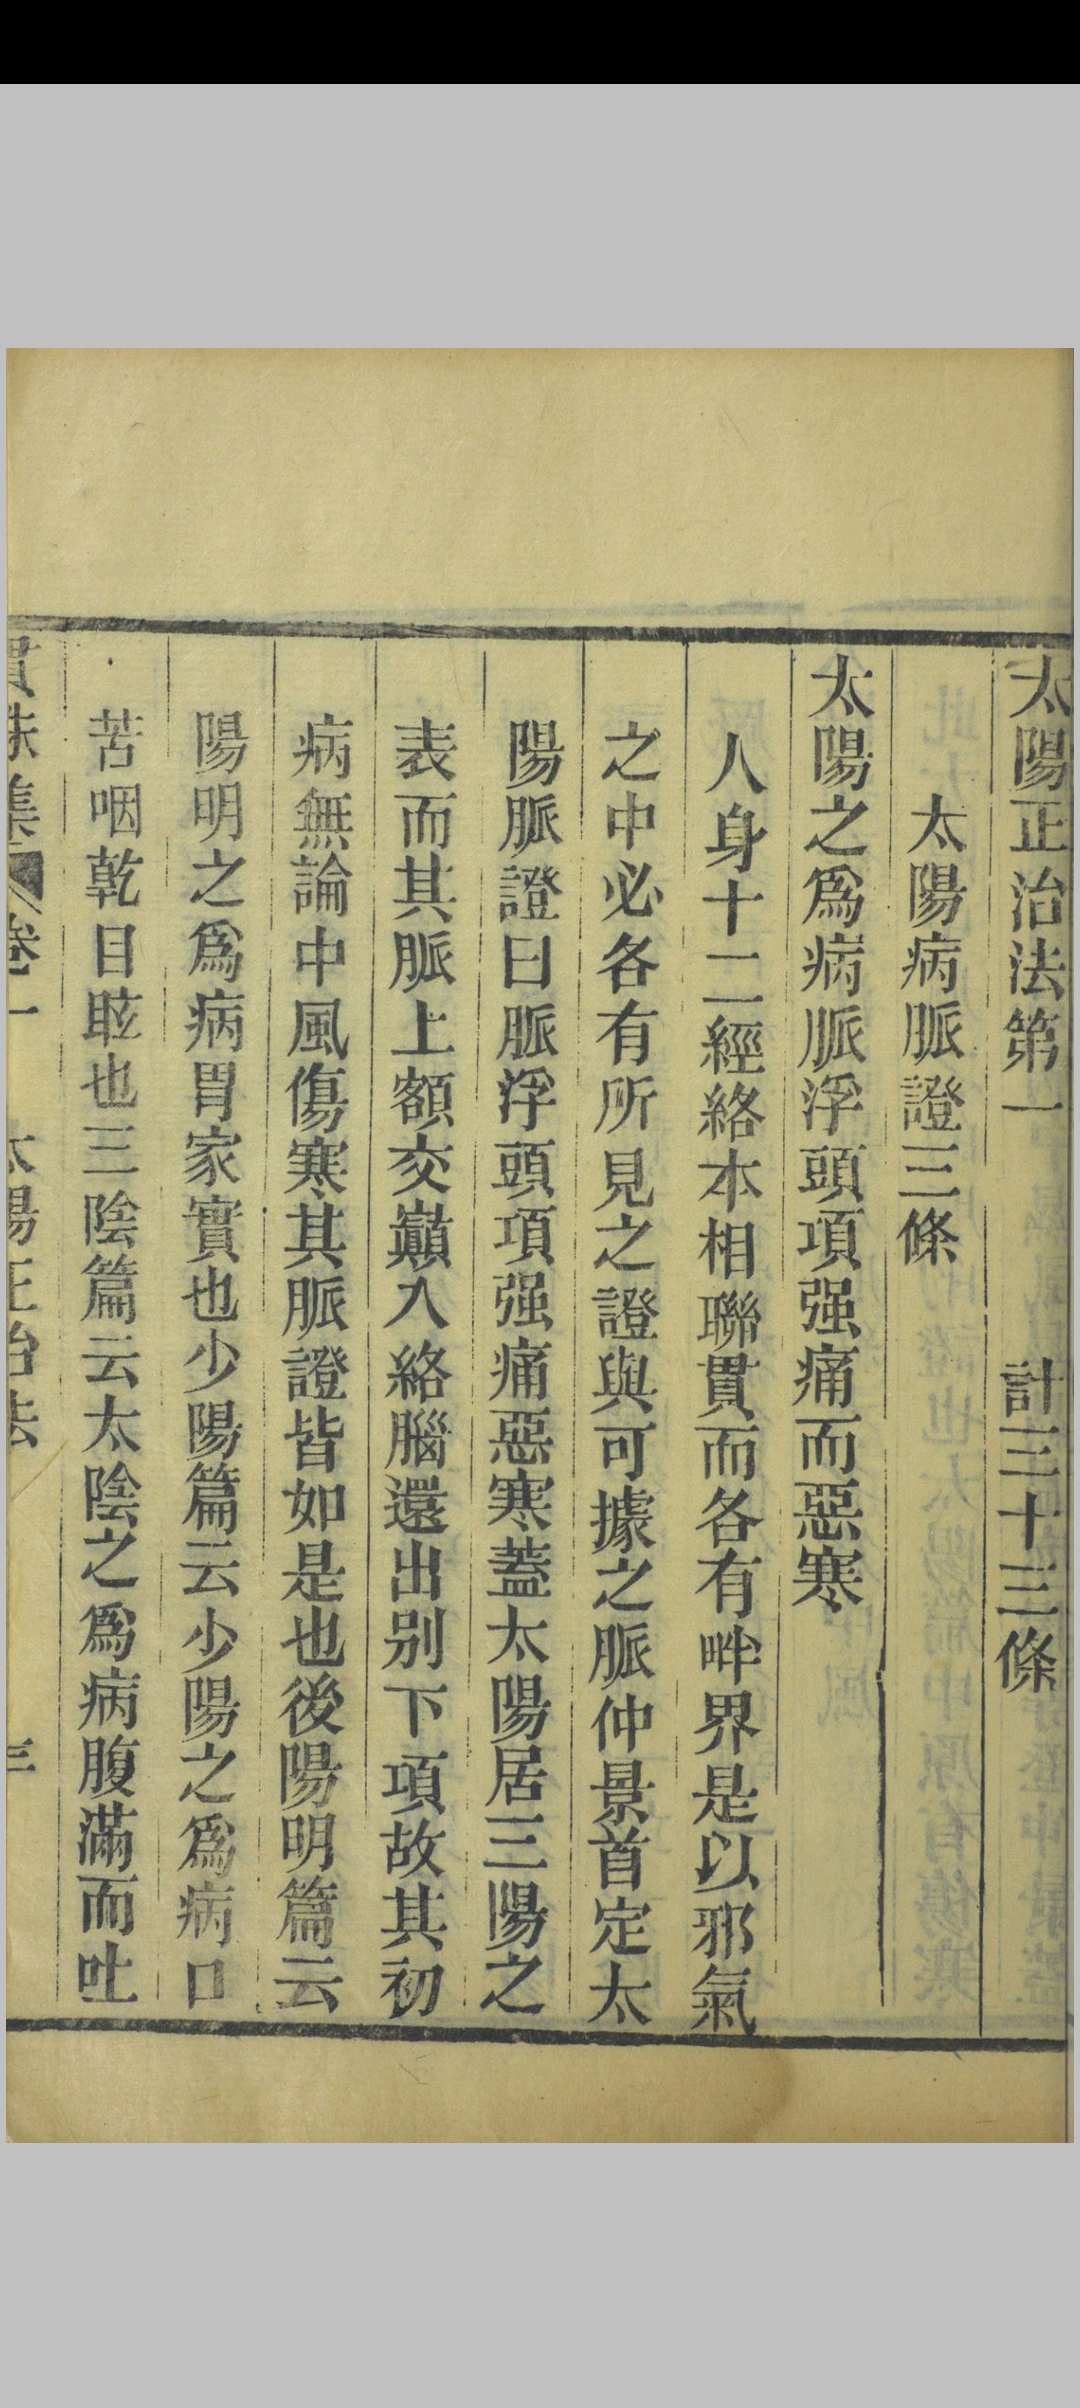 太陽正治法第一　計三十三條
太陽病脈證三條
太陽之爲病脈浮頭項强痛而惡寒
人身十二經絡本相聯貫而各有畔界是以邪氣
之中必各有所見之證與可據之脈仲景首定太
陽脈證曰脈浮頭項强痛惡寒蓋太陽居三陽之
表而其脈上額交巔入絡腦還出别下項故其初
病無論中風傷寒其脈證皆如是也後陽明篇云
陽明之爲病胃家實也少陽篇云少陽之爲病口
苦咽乾目眩也三陰篇云太陰之爲病腹滿而吐
貫珠集 卷一 太陽正治法